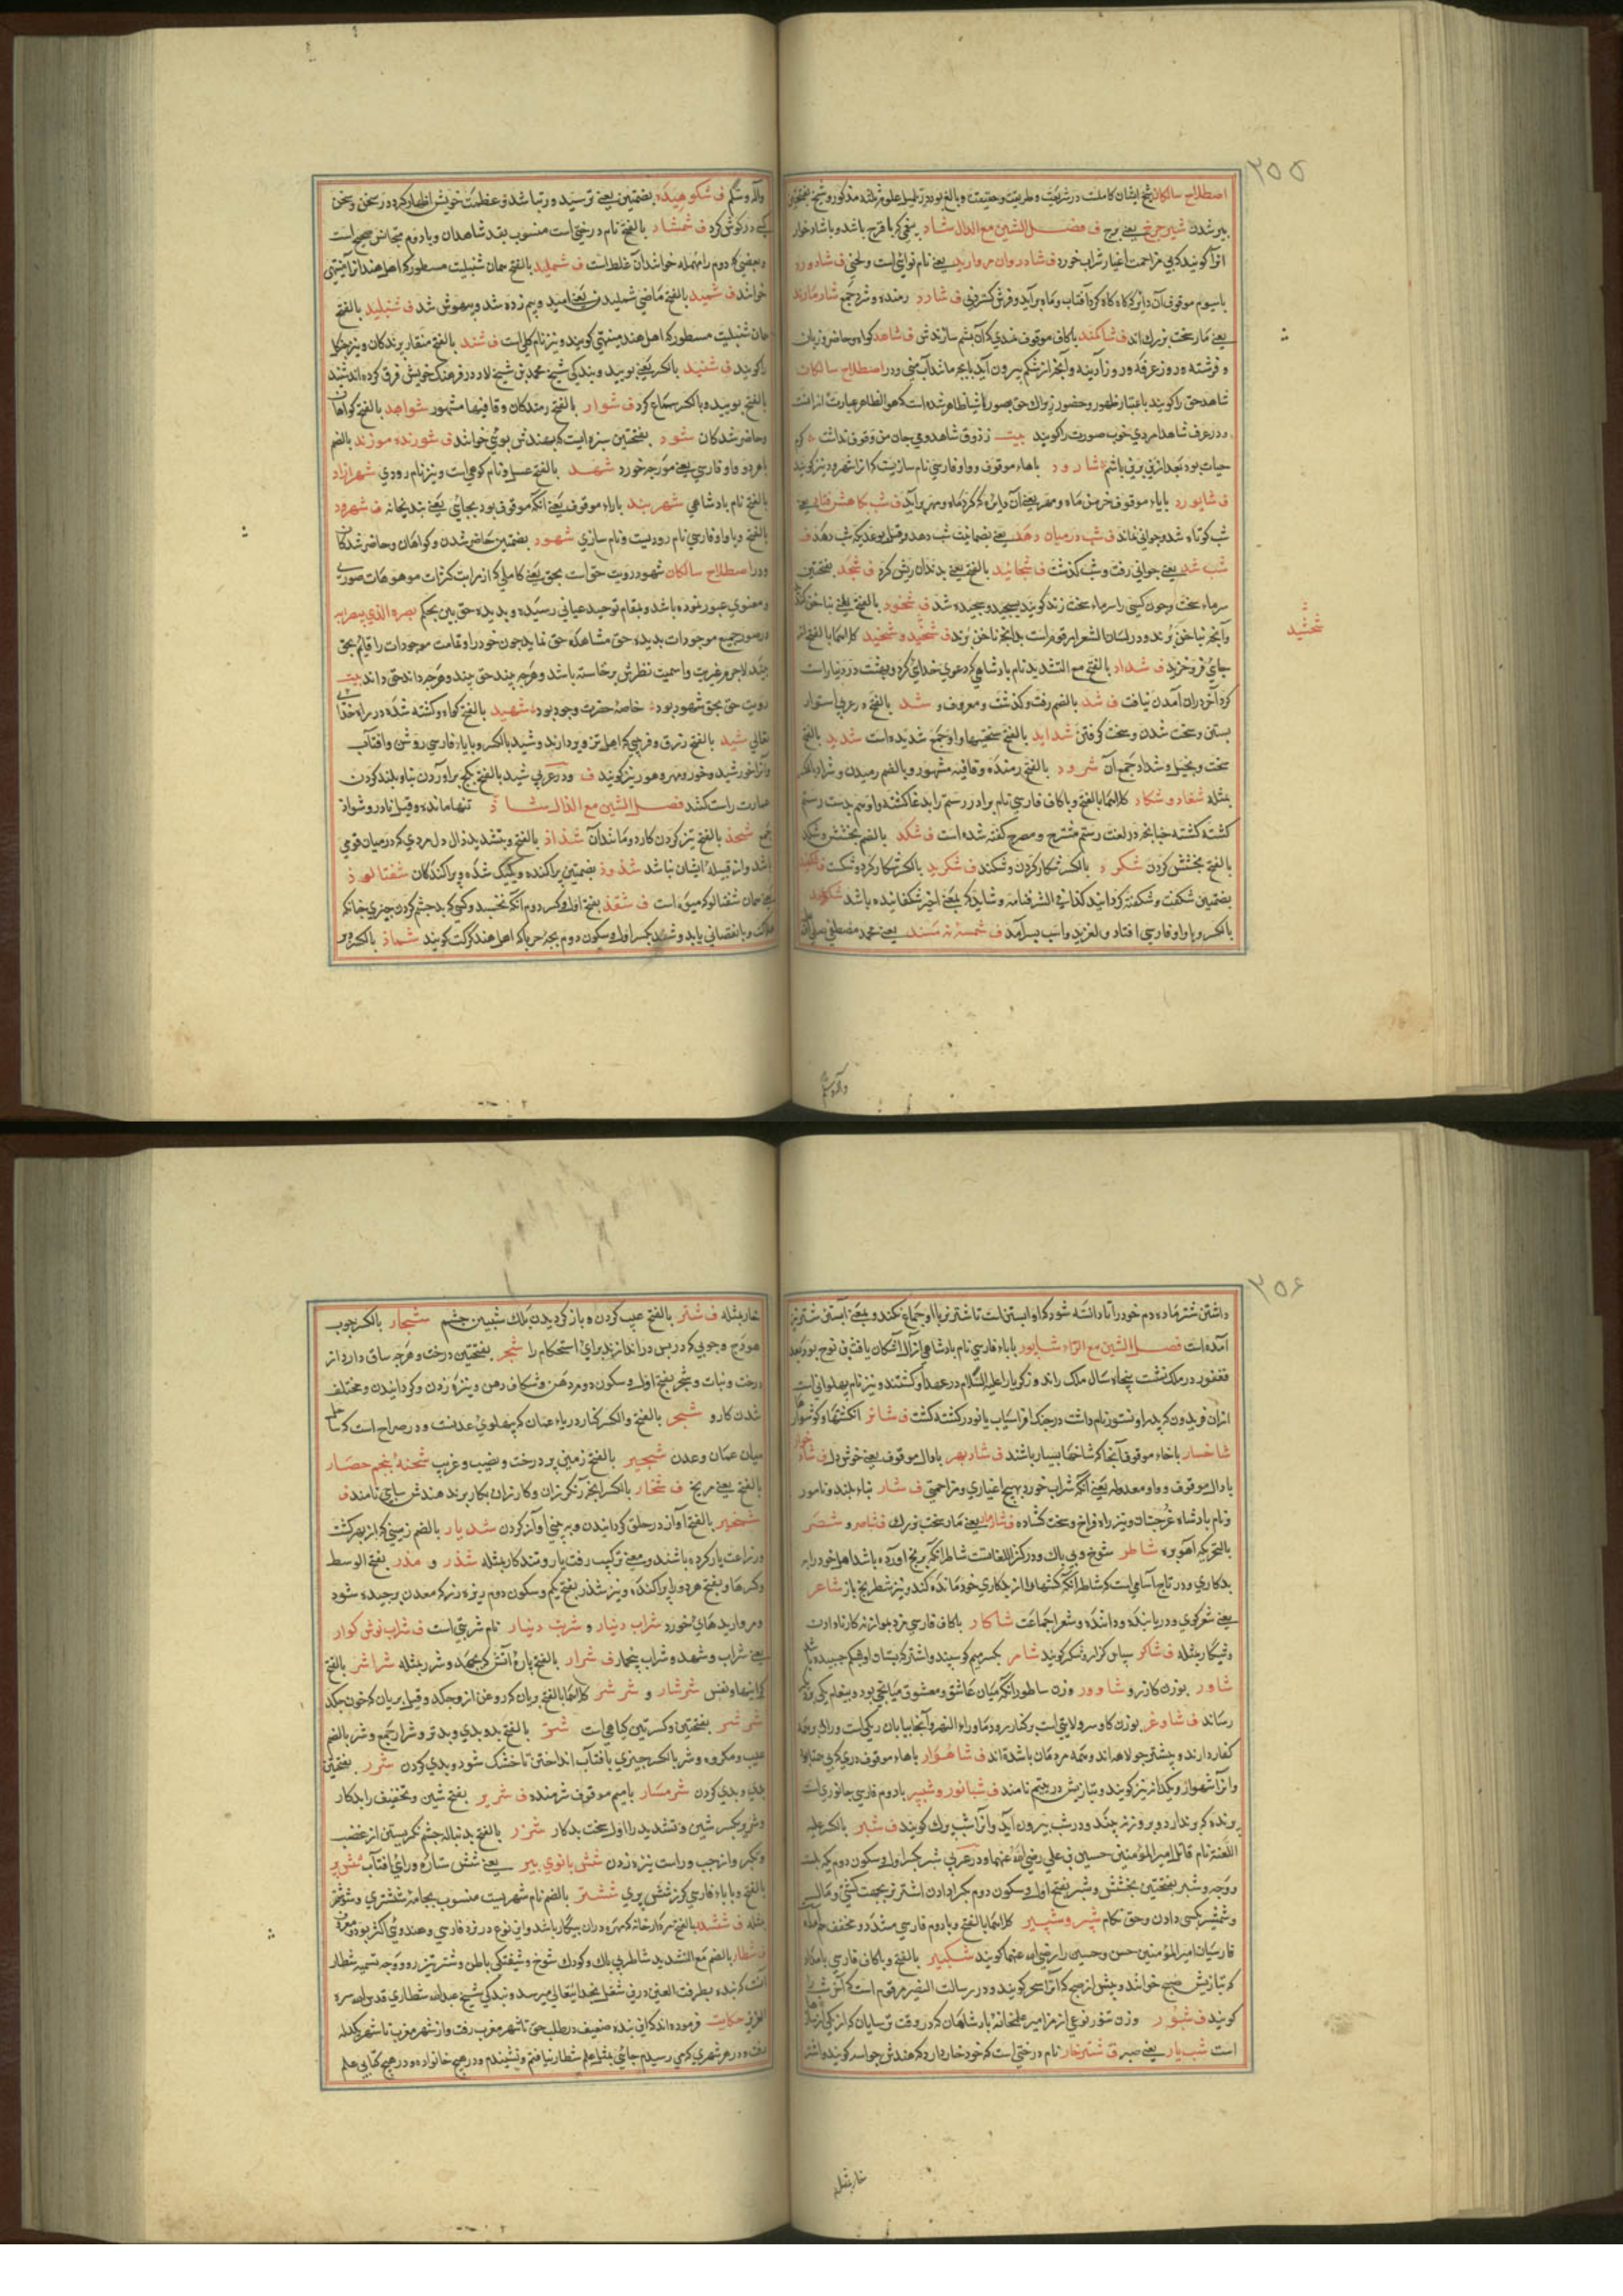 ۲۵۵
اصطلاح سالکان شیخ ایشان کاملست در شریعت و طریقت و حقیقت و بالغ بود در
پیر شدن شیر چرخ یعنی برج ف فصل الشین مع الدال شاد باشد و باشاد خوار
انرا کویند که بی مزاحمت اغیار شراب خورد ف شادروان مروارید یعنی نام نوائی است و لحنی ف شادورد
باسیوم موقوف آن دایره که کاه کاه کرد آفتاب و ماه برآید و فرش کستردنی ف شارد رمنده و شرد جمع شارمارند
یعنی مار سخت بزرک اند ف شاکمند باکاف موقوف نمدی که آن بشم سازندش ف شاهد کواه و حاضر و زبان
و فرشته و روز عرفه و روز آدینه و آنچه از شکم بیرون آید با بچه مانند آب بینی و در اصطلاح سالکان
شاهد حق را کویند باعتبار ظهور و حضور
و در عرف شاهد امردی خوب صورت را کویند بیت ز ذوق شاهد و می جان من وقوف نداشت
شارود باهاء موقوف و واو فارسی نام سازیست که انرا شهرود نیز کویند
ف شایورد بایاء موقوف خرمن ماه و مهر یعنی آن دایره که کرد ماه و مهر برآید ف شب کاهش فتا یعنی
شب کوتاه شد و جوانی نماند ف شب در میان دهد یعنی بضمانت شب دهد و قیل بوعد یکشب دهد ف
شب شد یعنی جوانی رفت و شب کذشت ف شخائید بالفتح یعنی بدندان ریش کرد ف شجد بفتحتین
سرماء سخت و چون کسی را سرماء سخت زند کویند بسجید و سجیده شد ف شخود بالفتح یعنی بناخن کند
جای فرو خزید ف شداد بالفتح مع التشدید نام بادشاهی که دعوی خدائی کرد و بهشت در دنیا راست
کرد آخر در ان آمدن نیافت ف شد بالضم رفت و کذشت و معروف و شد بالفتح در عربی استوار
بستن و سخت شدن و سخت کرفتن شداید بالفتح سختیها و او جمع شدیده است شدید بالفتح
سخت و بخیل و شداد جمع آن شرود بالفتح رمنده و قافیه مشهور و بالضم رمیدن و شراد بالکسر
مثله شغاد و شکاد کلاهما بالفتح و باکاف فارسی نام برادر رستم
کشته کشته چنانچه در لغت رستم مشرح و مصرح کفته شده است ف شکد بالضم بخشش و شکد
بالفتح بخشش کردن شکرد بالکسر شکار کردن و شکند ف شکرید بالکسر شکار کرد و شکست ف
بضمتین شکفت و شکفته کردانید کذا فی الشرفنامه و شاید که بمعنی اخیر شکفانیده باشد
بالکسر و با واو فارسی افتاد و لغزید و اسب بسر آمد ف شمسه نه مسند یعنی محمد مصطفی
شخشید
واله و شکم
واله و شکم ف شکوهیده بضمتین یعنی ترسید و عظمت خویش اظهار کرد
کرد ف شمشاد بالفتح نام درختی است منسوب بقد شاهدان
و بعضی که دوم را مهمله خوانند آن غلط است ف شملید بالفتح همان شنبلیت مسطور که اهل هند انرا مینتهی
خوانند ف شمید بالفتح ماضی شمیدن و بیم زده شد و بیهوش شد ف شنبلید بالفتح
همان شنبلیت مسطور که اهل هند مینتهی کویند و نیز نام کلی است ف شند بالفتح منقار پرندکان
را کویند ف شنید بالکسر یعنی بویید و بندکی شیخ محمد بن شیخ لاد در فرهنک خویش فرق کرده اند شنید
بالفتح بوییده و بالکسر سماع کرد ف شوارد بالفتح رمندکان و قافیها مشهور شواهد بالفتح کواهان
و حاضر شدکان شود بفتحتین سبزه ایست که بهندش سوئی خوانند ف شورنده موزند بالضم
باهر دو واو فارسی یعنی مورچه خورد شهد بالفتح عسل و نام کوهی است و نیز نام رودی شهرآزاد
بالفتح نام بادشاهی شهربند باراء موقوف یعنی انکه موقوف بود بجایی یعنی بندیخانه ف شهرود
بالفتح و باواو فارسی نام رودیست و نام سازی شهود بضمتین حاضر شدن و کواهان و حاضر شدکان
و در اصطلاح سالکان شهود رویت حق است بحق یعنی کاملی که از مراتب کثرات موهومات صوری
و معنوی عبور نموده باشد و بمقام توحید عیانی رسیده و بدیده حق بین بحکم بصره الذی یبصر به
در صور جمیع موجودات بدیده حق مشاهده حق نماید چون خود را و تمامت موجودات را قائم بحق
بیند لاجرم غیریت و اسمیت نظرش برخاسته باشد و هرچه بیند حق بیند و هرچه داند حق داند بیت
رویت حق بحق شهود بود خاصه حضرت وجود بود شهید بالفتح کواه و کشته شده در راه خدا
تعالی شید بالفتح زرق و فریبی که اهل تزویر دارند و شید بالکسر و بایاء فارسی روشن و افتاب
و آنرا خورشید و خور و مهر و هور نیز کویند ف و در عربی شید بالفتح بکج برآوردن بنا و بلند کردن
عمارت راست کنند فصل الشین مع الذال شاذ تنها مانده و قیل نادر و شواذ
جمع شحذ بالفتح تیز کردن کارد و مانند آن شذاذ بالفتح و بتشدید ذال اول مردمی که در میان قومی
باشد و از قبیله ایشان نباشد شذوذ بضمتین پراکنده و یکیک شده و پراکندکان شفتالوذ
یعنی همان شفتالو که میوه است ف شقذ بفتح اول و کسر دوم انکه نخسبد و کسی که بد چشم کردن چیزی چنانکه
هلاک و یا نقصانی یابد و شقذ بکسر اول و سکون دوم بچه حربا که اهل هند کرکت کویند شماذ بالکسر
۲۵۶
داشتن شتر ماده دم خود را تا دانسته شود که او ابستن است تا شتر نر با او جماع نکند و بمعنی ابستن شتر نیز
آمده است فصل الشین مع الراء شابور باباء فارسی نام بادشاهی از آل اشکان یافث بن نوح بود بعد
فغفور در ملک نشست پنجاه سال ملک راند و زکریا را علیه السلام در عهد او کشتند و نیز نام پهلوانی است
ایران فریدون که پدر او نستور نام داشت در جنک افراسیاب با نوذر کشته کشت ف شاتر انکشتها و کوشوار
شاخسار باخاء موقوف آنجا که شاخها بسیار باشند ف شادبهر بادال موقوف یعنی خوش دل ف شاد خوار
بادال موقوف و واو معدوله یعنی انکه شراب خورد بیهیچ اغیاری و مزاحمتی ف شار بناء بلند و نامور
و نام بادشاه غرجستان و نیز راه فراخ و سخت کشاده ف شارمار یعنی مار سخت بزرک ف شاصر و شصر
بالتحریک آهو بره شاطر شوخ و بی باک و در کنز اللغات است شاطر انکه برنج اورده باشد اهل خود را به
بدکاری و در تاج اسامی است که شاطر انکه کسها را از بدکاری خود مانده کند و نیز شطرنج باز شاعر
یعنی شعر کوی و دریابنده و داننده و شعرا جماعت شاکار باکاف فارسی مزدیوار نه کار نا دادن
و شیکار مثله ف شاکر سپاس کزار و شکر کویند شامر بکسر میم کوسپند و اشتر که بستان او بشکم چسبیده باشد
شاور بوزن کازر و شاوور وزن ساطور انکه میان عاشق و معشوق میانجی بود و پیغام یکی بدیکر
رساند ف شاوغر بوزن کاوسر ولایتی است بر کنار رود ماوراء النهر و آنجا بیابان ریکی است
کفار دارند و بیشتر جولاهه اند و همه مردمان باشنده اند ف شاهوار باهاء موقوف دری که بی همتا بود
و انرا شهوار و یکدانه نیز کویند و بتازیش در یتیم نامند ف شبانور و شبپر بادوم فارسی جانوری است
پرنده که پر ندارد و بروز نه پرد و در شب بیرون آید و انرا شب پرک کویند ف شبر بالکسر علیه
اللعنه نام قاتل امیر المؤمنین حسین بن علی رضی الله عنهما و در عربی شبر بکسر اول و سکون دوم یک بدست
و وجه و شبر بفتحتین بخشش و شبر بفتح اول و سکون دوم بکرا دادن اشتر نر بجهت کشنی و مال
و شمشیر بکسی دادن و حق نکاح شبر و شبیر کلاهما بالفتح و بادوم فارسی مشدد و مخفف
فارسیان امیر المؤمنین حسن و حسین را رضی الله عنهما کویند شبکیر بالفتح و باکاف فارسی بامداد
که بتازیش صبح خوانند و پیش از صبح که آنرا سحر کویند و در رسالت النصیر مرقوم است که آخر شب را
کویند ف شبور وزن تنور نوعی از مزامیر علمخانه بادشاهان که در وقت ترسایان
است شب یار یعنی صبر ف شترخار نام درختی است که خود خار دارد که هندش جواسه کویند و اشتر
خار مثله
خار مثله ف شتر بالفتح عیب کردن و باز کردیدن پلک شیبین چشم شجار بالکسر چوب
هودج و چوبی که در پس در اندازند برای استحکام را شجر بفتحتین درخت و هرچه ساق دارد از
درخت و نبات و شجر بفتح اول و سکون دوم دهن و شکاف دهن و نیزه زدن و کردانیدن و مختلف
شدن کار و شحر بالفتح و الکسر کنار دریاء عمان که بپهلوی عدنست و در صراح است که ساحل
میان عمان و عدن شجیر بالفتح زمین پر درخت و نصیب و غریب شحنه پنجم حصار
بالفتح یعنی مریخ ف شخار بالکسر آنچه رنکرزان و کازران بکار برند هندش ساجی نامند ف
شخیر بالفتح آواز در حلق کردانیدن و به بینی آواز کردن شدیار بالضم زمینی که از بهر کشت
و زراعت یار کرده باشند و بمعنی ترکیب رفت یار و تندکار مثله شذر و مذر بفتح الوسط
و کسرها و بفتح هر دو یعنی پراکنده و نیز شذر بفتح یکم و سکون دوم ریزه زر که معدن برچیده شود
و مرواریدهای خورد شراب دینار و شربت دینار نام شربتی است ف شراب نوش کوار
یعنی شراب و شهد و شراب بیخمار ف شرار بالفتح پاره آتش که بجهد و شرر مثله شراشر بالفتح
کرانیها و نفس شرشار و شرشر کلاهما بالفتح بریان که روغن ازو چکد و قیل بریان که خون چکد
شرشر بفتحتین و کسرتین کیاهی است شر بالفتح بد و بدی و بدتر و شرار جمع و شر بالضم
عیب و مکروه و شر بالکسر چیزی بافتاب انداختن تا خشک شود و بدی کردن شرر بفتحتین
بدی و بدی کردن شرمسار بامیم موقوف شرمنده ف شریر بفتح شین و تخفیف را بدکار
و شریر بکسر شین و تشدید را اول سخت بدکار شزر بالفتح بدنباله چشم نکریستن از غضب
و تکبر و از چپ و راست نیزه زدن شش بانوی پیر یعنی شش ستاره ورای افتاب ششپر
بالفتح و باباء فارسی کرز شش پری ششتر بالضم نام شهریست منسوب بجامه ششتری و شوشتر
مثله ف ششدر بالفتح
ف شطار بالضم مع التشدید شاطر بی باک و کودک شوخ و شیفتکی باطن و شتر تیزرو و وجه تسمیه شطار
آنست که بنده بطرفت العین درین شغل بخدایتعالی میرسد و بندکی شیخ عبدالله شطاری قدس الله سره
العزیز حکایت فرموده اند که این بنده ضعیف در طلب حق تا شهر مغرب رفت و از شهر مغرب تا شهر
رفت و در هر شهری که می رسیدم جائی مثل علم شطار نیافتم و نشنیدم و در هیچ خانواده و در هیچ کتابی علم